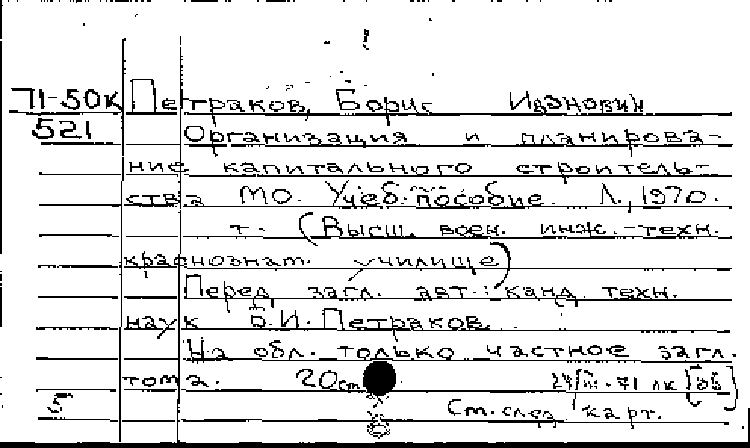 71-50к Петраков, Борис Иванович
521 Организация и планирова-
ние капитального строитель-
ства МО. Учеб. пособие. Л., 1970.
т. (Высш. воен. инж.-техн.
краснознам. училище)
Перед загл. авт.: канд. техн.
наук Б.И. Петраков.
На обл. только частное загл.
тома. 20см
71 лк
См. след карт.